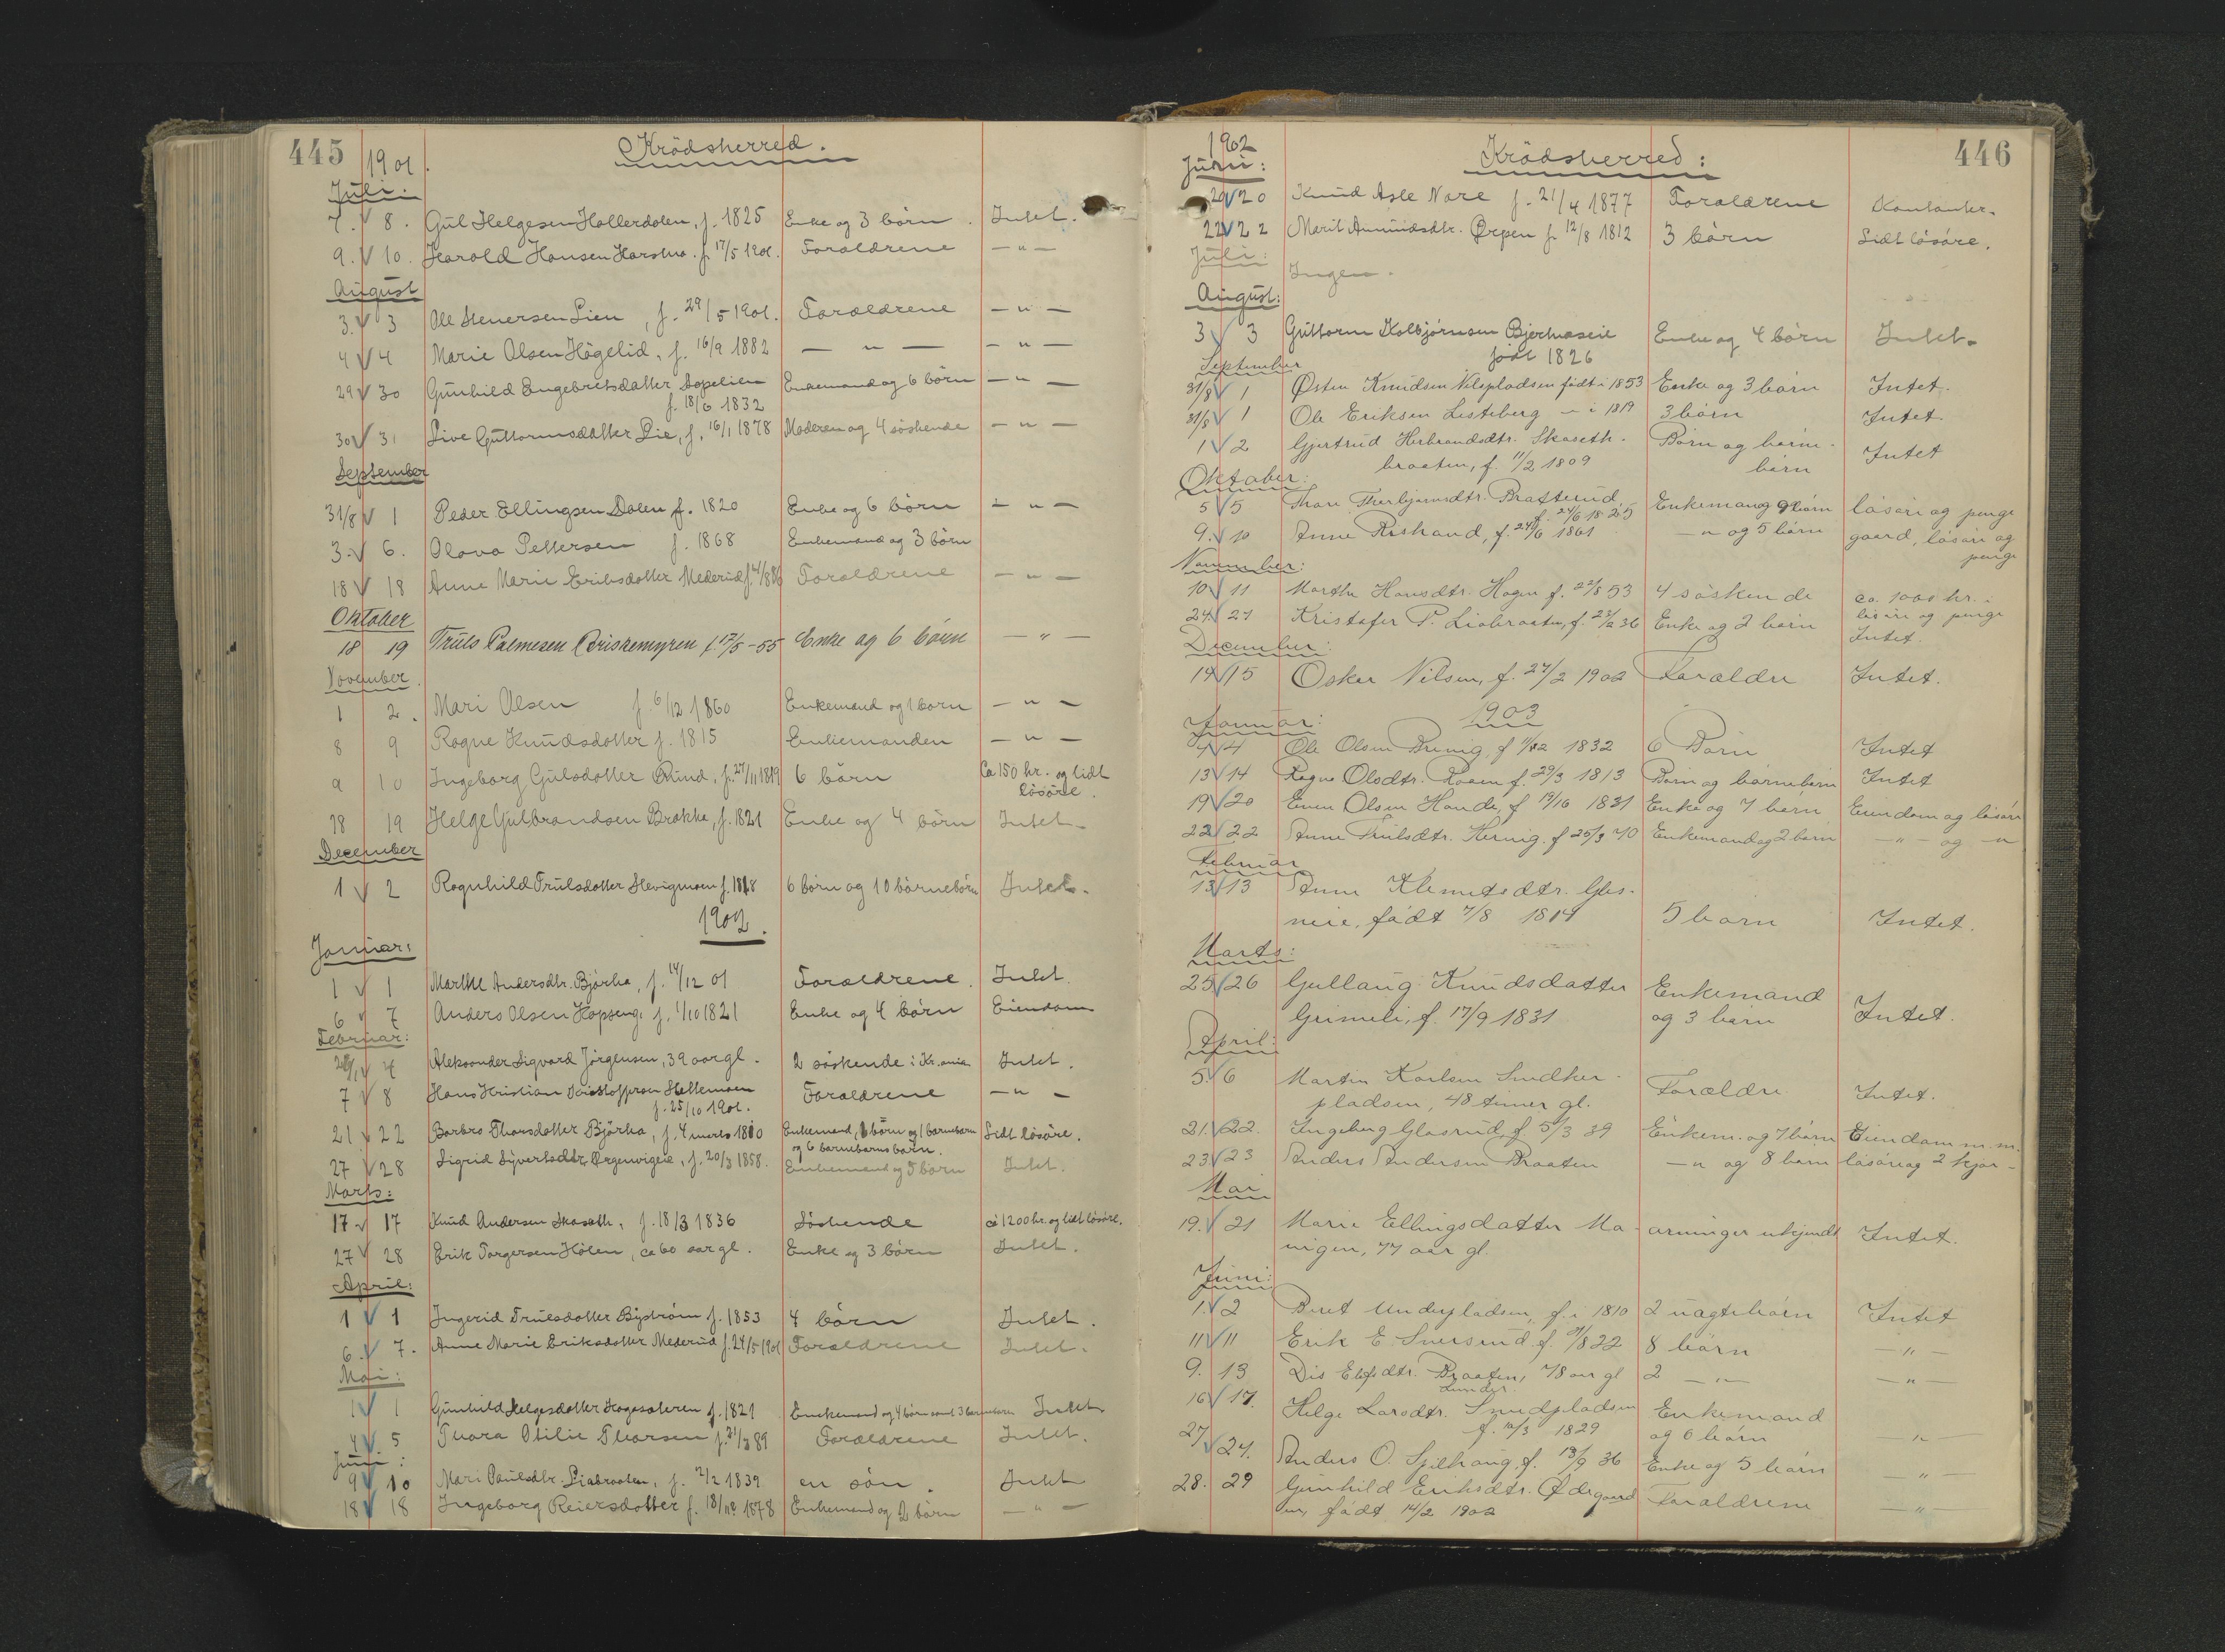 445
1901.
Krödsherred.
Juli.
7. 8. Gul Helgesen Hallerdalen, f. 1825 Enke og 3 börn. Intet.
9. 10. Harald Hansen f. 17/5 1901. Forældrene — " —
August
3. 3 Ole Stenersen Lien, f. 29/5 1901. Forældrene — " —
4 4 Marie Olsen Högelid, f. 16/9 1882 — " — — " —
29 30 Gunhild Engebretsdatter Enkemand og 6 börn — " —
f. 18/6 1832
30 31 Live Guttormsdatter Lie, f. 16/1 1878 Moderen og 4 söskende — " —
September
31/8 1 Peder Ellingsen Dalen f. 1820 Enke og 6 börn — " —
3. 6. Olava Pettersen f. 1868 Enkemand og 3 börn
18 18 Anne Marie Eriksdatter Mederud Forældrene — " —
Oktober
18 19 Truls Palmesen Briskemyren f. 17/5 - 55 Enke og 6 börn — " —
November.
1 2. Mari Olsen f. 6/12 1860 Enkemand og 1 barn — " —
8 9 Ragne Knudsdatter f. 1815 Enkemanden — " —
9 10 Ingeborg Gulsdatter Rud, f. 27/11 1819 6 börn Ca 150 kr. og lidt
lösöre.
18 19 Helge Gulbrandsen Brakka, f. 1821 Enke og 4 börn Intet
December
1 2 Ragnhild Trulsdatter Slevigmoen f. 1818 6 börn og 10 börnebörn Intet.
1902.
Januar:
1 1 Marthe Andersdtr. Bjørka, f. 14/12 01 Forældrene. Intet.
6 7 Anders Olsen Hopseng. f. 1/10 1821 Enke og 4 börn Eiendom
Februar:
4 Aleksander Sigvard Jörgensen, 39 aar gl. 2 söskende i Kr.ania Intet.
7 8 Hans Kristian Kristoffersen Forældrene — " —
f. 25/10 1901.
21 22 Barbro Thorsdatter Björka, f. 4 marts 1810 Enkemand, börn og 1 barnebarn Lidt lösöre.
og 6 barnebarns barn.
27 28 Sigrid Syvertsdtr. f. 20/3 1858. Enkemand og 5 börn Intet.
Marts:
17 17 Knud Andersen Skaseth, f. 18/3 1836 Söskende ca 1200 kr. og lidt lösöre.
27 28 Erik Torgersen Hölen, ca 60 aar gl. Enke og 3 börn Intet.
April:
1 1 Ingerid Truesdatter Byström f. 1853 4 börn Intet.
6. 7. Anne Marie Eriksdatter Mederud f. 24/5 1901 Forældrene Intet.
Mai:
1 1 Gunhild Helgesdatter f. 1821 Enkemand og 4 börn samt 3 Intet
4 5 Thora Otilie Thorsen f. 21/3 89 Forældrene Intet.
Juni:
9 10 Mari Paulsdtr. Liabraaten, f. 2/2 1839 en sön. Intet
18 18 Ingeborg Reiersdatter f. 1878 Enkemand og 2 börn — " —
446
1902
Krödsherred:
Juni:
20 20 Knud Asle Nore f. 21/4 1877 Forældrene Kontanter.
22 22 Marit Amundsdtr. Ørpen f. 12/8 1812 3 börn Lidt lösöre.
Juli:
Ingen.
August:
3 3 Guttorm Kolbjörnsen Enke og 4 börn Intet.
född 1826
September
31/8 1 Østen Knudsen Vilepladsen född i 1853 Enke og 3 börn Intet.
31/8 1 Ole Eriksen Lesteberg — i 1819 3 börn Intet
1 2 Gjertrud Herbrandsdtr. Skaseth- Börn og barne- Intet
braaten, f. 11/2 1809 börn
Oktober:
5 5 Thore Thorbjörnsdtr. Bratterud, Enkemand og börn lösöre og penge
f. 24/6 1825
9. 10 Anne Rishaud, f. 24/6 1861 — " og 5 börn gaard, lösöre og
penge
November:
10. 11 Marthe Hansdtr. Hagen f. 22/8 53 4 söskende ca. 1000 kr. i
lösöre og penge
24. 27 Kristofer P. Liabraaten, f. 23/12 36 Enke og 2 börn Intet.
December:
14 15 Oskar Nilsen, f. 27/2 1902 Forældre Intet.
1903
Januar:
4 4 Ole Olsen f. 1832 6 Börn Intet
13 14 Ragne Olsdtr. Roaen f. 29/3 1813 Börn og börnebörn Intet
19 20 Even Olsen Haude, f. 1831 Enke og 7 börn Eiendom og lösöre
22 22 Anne Trulsdtr. f. 25/3 70 Enkemand og 2 börn — " — og — "
Februar
13 13 Anne Klemetsdtr. Gles-
neie, född 7/8 1814 5 börn Intet.
Marts:
25 26 Gullaug Knudsdatter Enkemand
Grimeli, f. 17/9 1831 og 3 börn Intet.
April:
5. 6 Martin Karlsen Smedker-
pladsen, 48 timer gl. Forældre Intet.
21. 22. Ingeborg Glasrud, f. 5/3 39 Enkem. og 7 börn Eiendom m. m.
23 23 Anders Andersen Braaten — " og 8 börn lösöre og 2 kjör-
Mai
19. 21 Marie Ellingsdatter Ma- arvinger ukjendt Intet.
nigen, 77 aar gl.
Juni:
1. 2 Beret Underpladsen, f. i 1810 2 uægte börn Intet
11 11 Erik E. Snersrud f. 9/8 22 8 börn — " —
9. 13 Dis Elefsdtr. Braaten, 78 aar gl 2 — " — — " —
16 17. Helge Larsdtr. Smedpladsen Enkemand
f. 1829 og 6 börn — " —
27 27. Anders O. f. 13/9 36 Enke og 5 börn — " —
28. 29 Gunhild Eriksdtr. Ødegaard Forældrene
en, född 14/2 1902 — " —